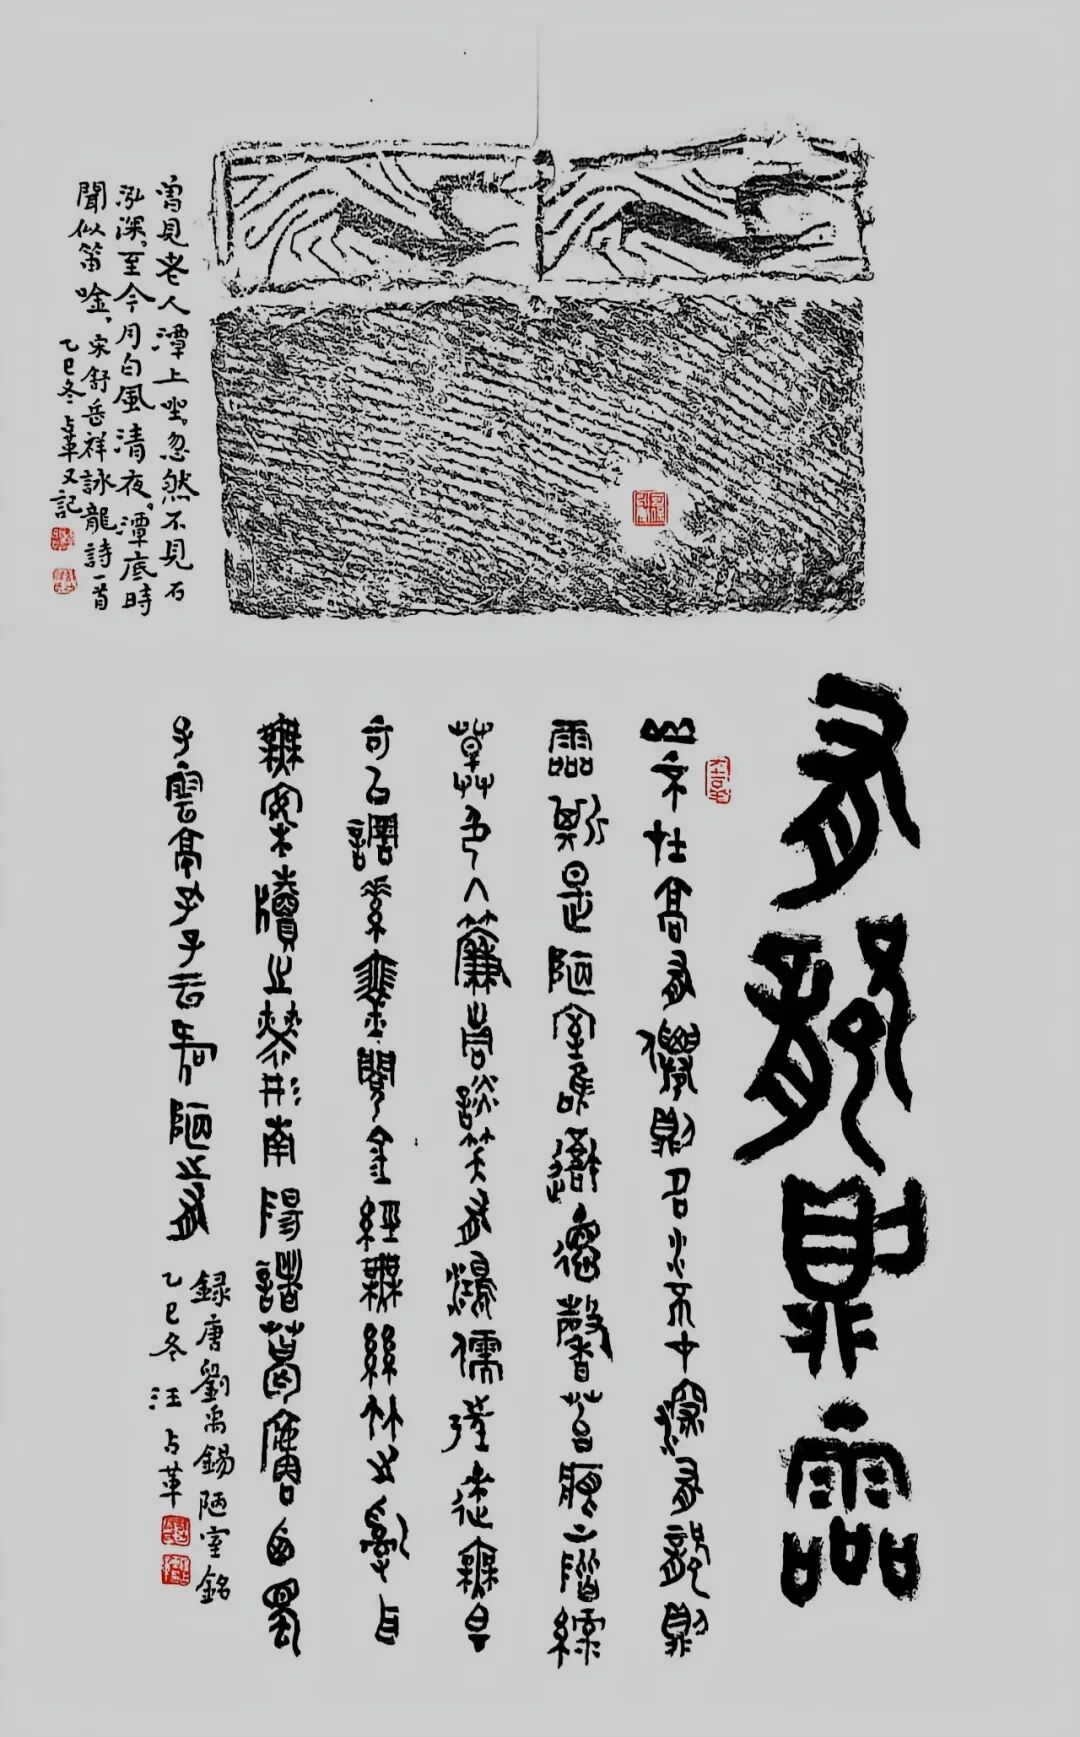 有龍則靈
山不在高有僊則名水不在深有龍則
靈斯是陋室唯吾德馨苔痕上階綠
草色入簾青談笑有鴻儒往來無白
可以調素琴閱金經無絲竹之亂耳
無案牘之勞形南陽諸葛廬西蜀
子雲亭孔子云何陋之有
錄唐劉禹錫陋室銘
乙巳冬 汪占革
曾見老人潭上坐、忽然不見石
泓深、至今月白風清夜、潭底時
聞似笛唫、宋舒岳祥詠龍詩一首
乙巳冬占革又記